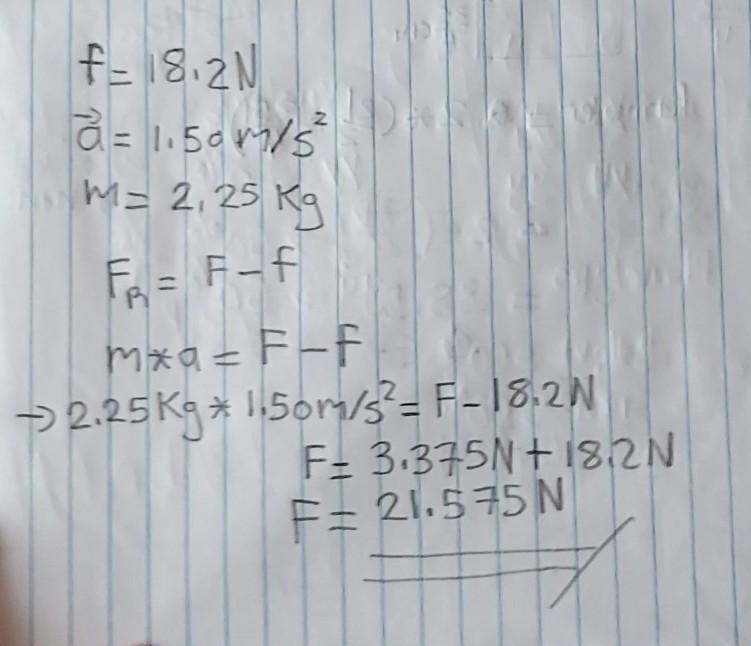 f = 18.2N
a⃗ = 1.50m/s²
m = 2,25 Kg
F_R = F - f
m*a = F - f
→ 2.25Kg * 1.50m/s² = F - 18.2N
F = 3.375N + 18.2N
F = 21.575N